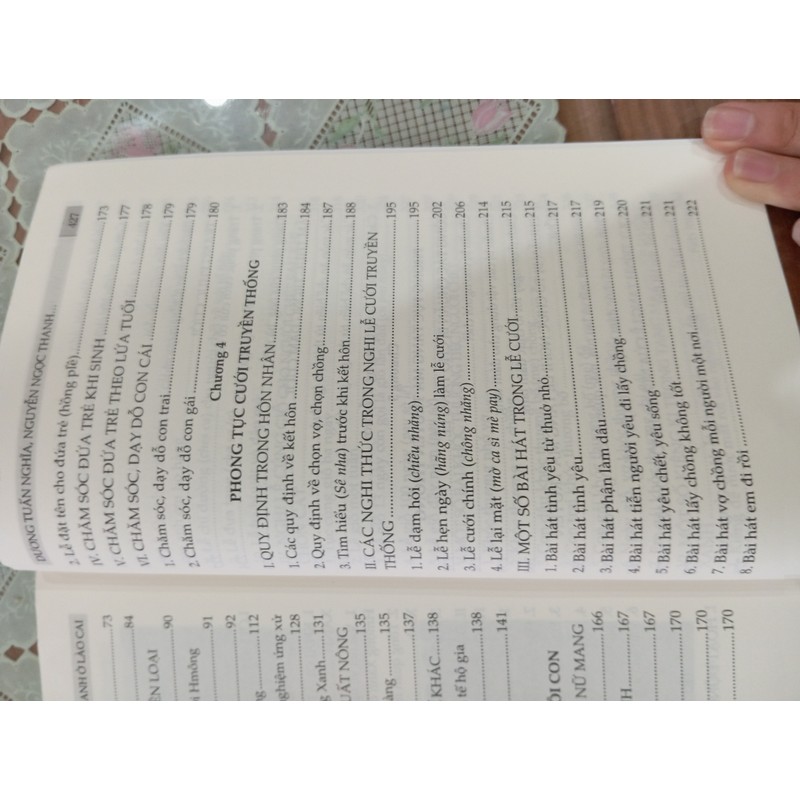 ANH Ở LÀO CAI
73
84
ÊN LOẠI
90
i Hmông
91
92
ng 112
nghiệm ứng xử
128
g Xanh 131
UẤT NÔNG
135
àng 135
137
KHÁC 138
tế hộ gia
138
141
ÔI CON
NỮ MANG
166
H 167
167
170
170
170
DƯƠNG TUẤN NGHĨA, NGUYỄN NGỌC THANH... 427
2. Lễ đặt tên cho đứa trẻ (hồng plề) 173
IV. CHĂM SÓC ĐỨA TRẺ KHI SINH 177
V. CHĂM SÓC ĐỨA TRẺ THEO LỨA TUỔI 178
VI. CHĂM SÓC, DẠY DỖ CON CÁI 179
1. Chăm sóc, dạy dỗ con trai 179
2. Chăm sóc, dạy dỗ con gái 180
Chương 4
PHONG TỤC CƯỚI TRUYỀN THỐNG
I. QUY ĐỊNH TRONG HÔN NHÂN 183
1. Các quy định về kết hôn 184
2. Quy định về chọn vợ, chọn chồng 187
3. Tìm hiểu (Sê nha) trước khi kết hôn 188
II. CÁC NGHI THỨC TRONG NGHI LỄ CƯỚI TRUYỀN
THỐNG 195
1. Lễ dạm hỏi (chiều nhăng) 195
2. Lễ hẹn ngày (hăng núng) làm lễ cưới 202
3. Lễ cưới chính (chông nhăng) 206
4. Lễ lại mặt (mờ ca sì mè pay) 214
III. MỘT SỐ BÀI HÁT TRONG LỄ CƯỚI 215
1. Bài hát tình yêu từ thuở nhỏ 215
2. Bài hát tình yêu 217
3. Bài hát phận làm dâu 217
4. Bài hát tiễn người yêu đi lấy chồng 219
5. Bài hát yêu chết, yêu sống 220
6. Bài hát lấy chồng không tốt 221
7. Bài hát vợ chồng mỗi người một nơi 221
8. Bài hát em đi rồi 222